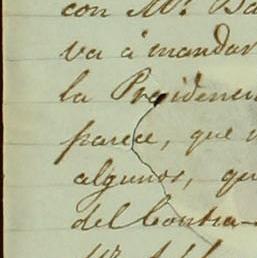 con Mr. Ba
va á mandar
la Presidenci
parece, que
algunos, qu
del Contra-